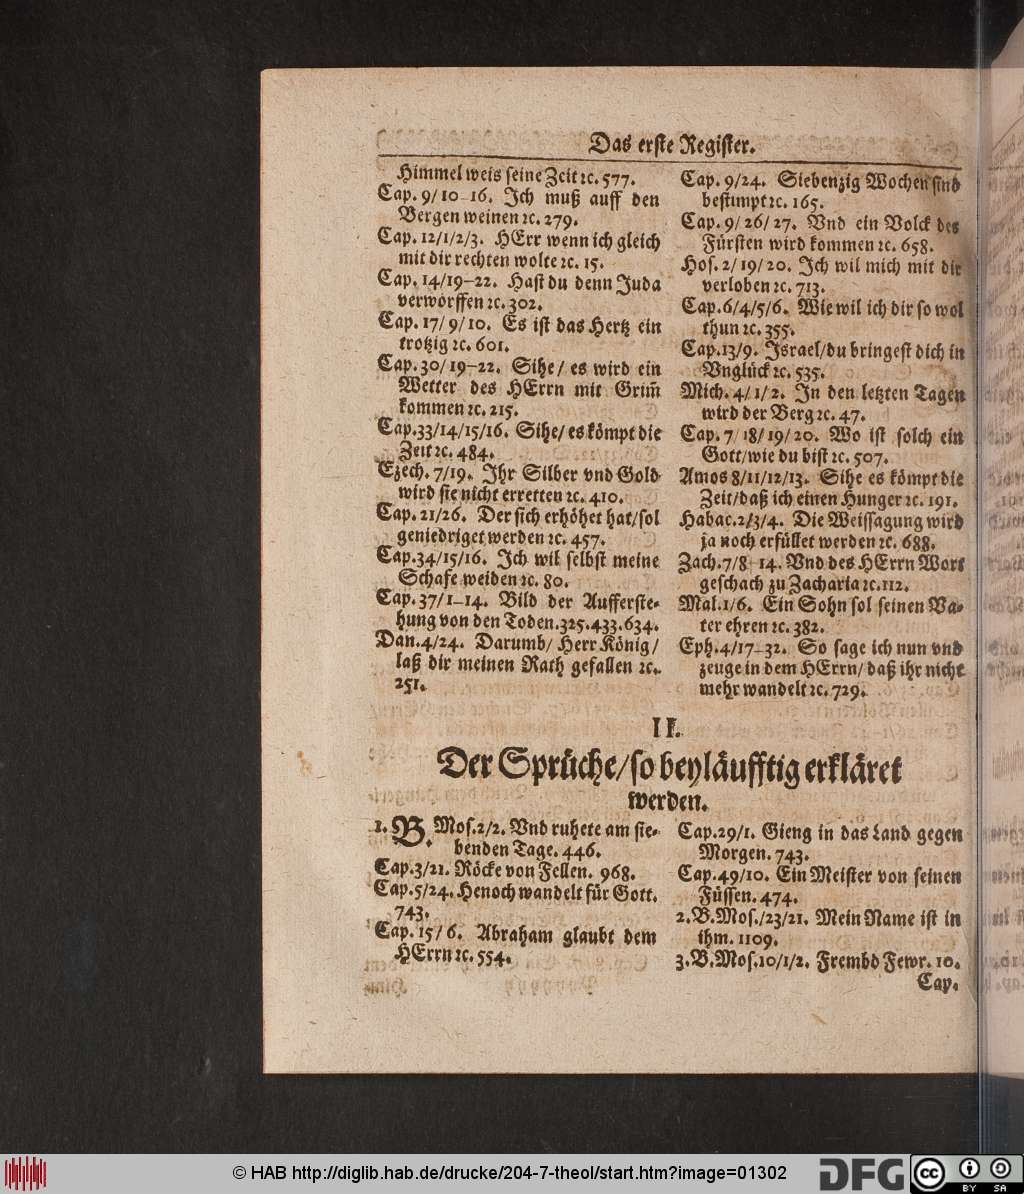 Das erste Register.
Himmel weis seine Zeit ꝛc. 577.
Cap. 9/10-16. Ich muß auff den
Bergen weinen ꝛc. 279.
Cap. 12/1/2/3. HErr wenn ich gleich
mit dir rechten wolte ꝛc. 15.
Cap. 14/19-22. Hast du denn Juda
verworffen ꝛc. 302.
Cap. 17/9/10. Es ist das Hertz ein
trotzig ꝛc. 601.
Cap. 30/19-22. Sihe/ es wird ein
Wetter des HErrn mit Grim̃
kommen ꝛc. 215.
Cap. 33/14/15/16. Sihe/ es kömpt die
Zeit ꝛc. 484.
Ezech. 7/19. Ihr Silber vnd Gold
wird sie nicht erretten ꝛc. 410.
Cap. 21/26. Der sich erhöhet hat/sol
geniedriget werden ꝛc. 457.
Cap. 34/15/16. Ich wil selbst meine
Schafe weiden ꝛc. 80.
Cap. 37/1-14. Bild der Aufferste-
hung von den Toden. 325. 433. 634.
Dan. 4/24. Darumb/ Herr König/
laß dir meinen Rath gefallen ꝛc.
251.
Cap. 9/24. Siebenzig Wochen sind
bestimpt ꝛc. 165.
Cap. 9/26/27. Vnd ein Volck des
Fürsten wird kommen ꝛc. 658.
Hos. 2/19/20. Ich wil mich mit dir
verloben ꝛc. 713.
Cap. 6/4/5/6. Wie wil ich dir so wol
thun ꝛc. 355.
Cap. 13/9. Israel/du bringest dich in
Vnglück ꝛc. 535.
Mich. 4/1/2. In den letzten Tagen
wird der Berg ꝛc. 47.
Cap. 7/18/19/20. Wo ist solch ein
Gott/wie du bist ꝛc. 507.
Amos 8/11/12/13. Sihe es kömpt die
Zeit/daß ich einen Hunger ꝛc. 191.
Habac. 2/3/4. Die Weissagung wird
ja noch erfüllet werden ꝛc. 688.
Zach. 7/8-14. Vnd des HErrn Wort
geschach zu Zacharia ꝛc. 112.
Mal. 1/6. Ein Sohn sol seinen Va-
ter ehren ꝛc. 382.
Eph. 4/17-32. So sage ich nun vnd
zeuge in dem HErrn/ daß ihr nicht
mehr wandelt ꝛc. 729.
II.
Der Sprüche/so beyläufftig erkläret
werden.
1. B. Mos. 2/2. Vnd ruhete am sie-
benden Tage. 446.
Cap. 3/21. Röcke von Fellen. 968.
Cap. 5/24. Henoch wandelt für Gott.
743.
Cap. 15/6. Abraham glaubt dem
HErrn ꝛc. 554.
Cap. 29/1. Gieng in das Land gegen
Morgen. 743.
Cap. 49/10. Ein Meister von seinen
Füssen. 474.
2. B. Mos./23/21. Mein Name ist in
ihm. 1109.
3. B. Mos. 10/1/2. Frembd Fewr. 10.
Cap.
© HAB http://diglib.hab.de/drucke/204-7-theol/start.htm?image=01302
DFG
cc BY SA